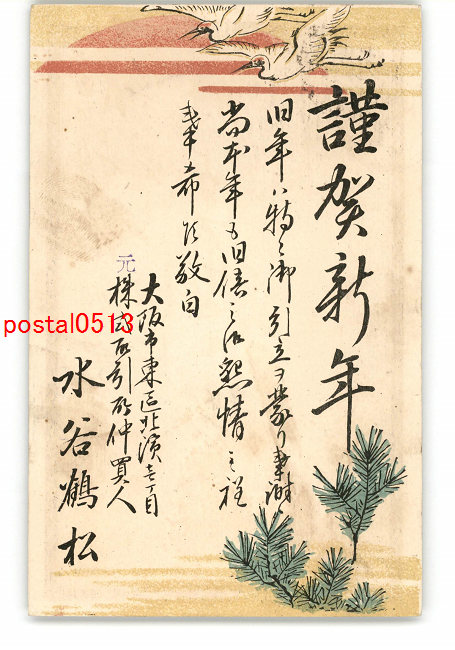 謹賀新年
旧年ハ特ニ御引立ヲ蒙リ奉謝
尚本年も旧倍之御懇情之程
奉希候敬白
大阪市東区北浜壱丁目
元株式取引所仲買人
水谷鶴松
postal0513